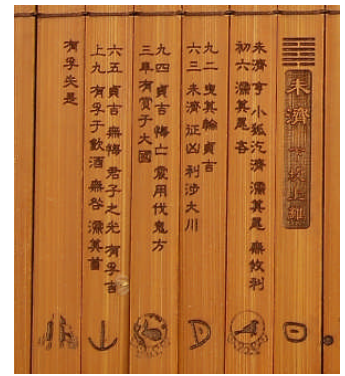 未濟 下坎上離
未濟 亨 小狐汔濟 濡其尾 無攸利
初六 濡其尾 吝
九二 曳其輪 貞吉
六三 未濟 征凶 利涉大川
九四 貞吉 悔亡 震用伐鬼方
三年有賞于大國
六五 貞吉 無悔 君子之光 有孚 吉
上九 有孚于飲酒 無咎 濡其首
有孚失是